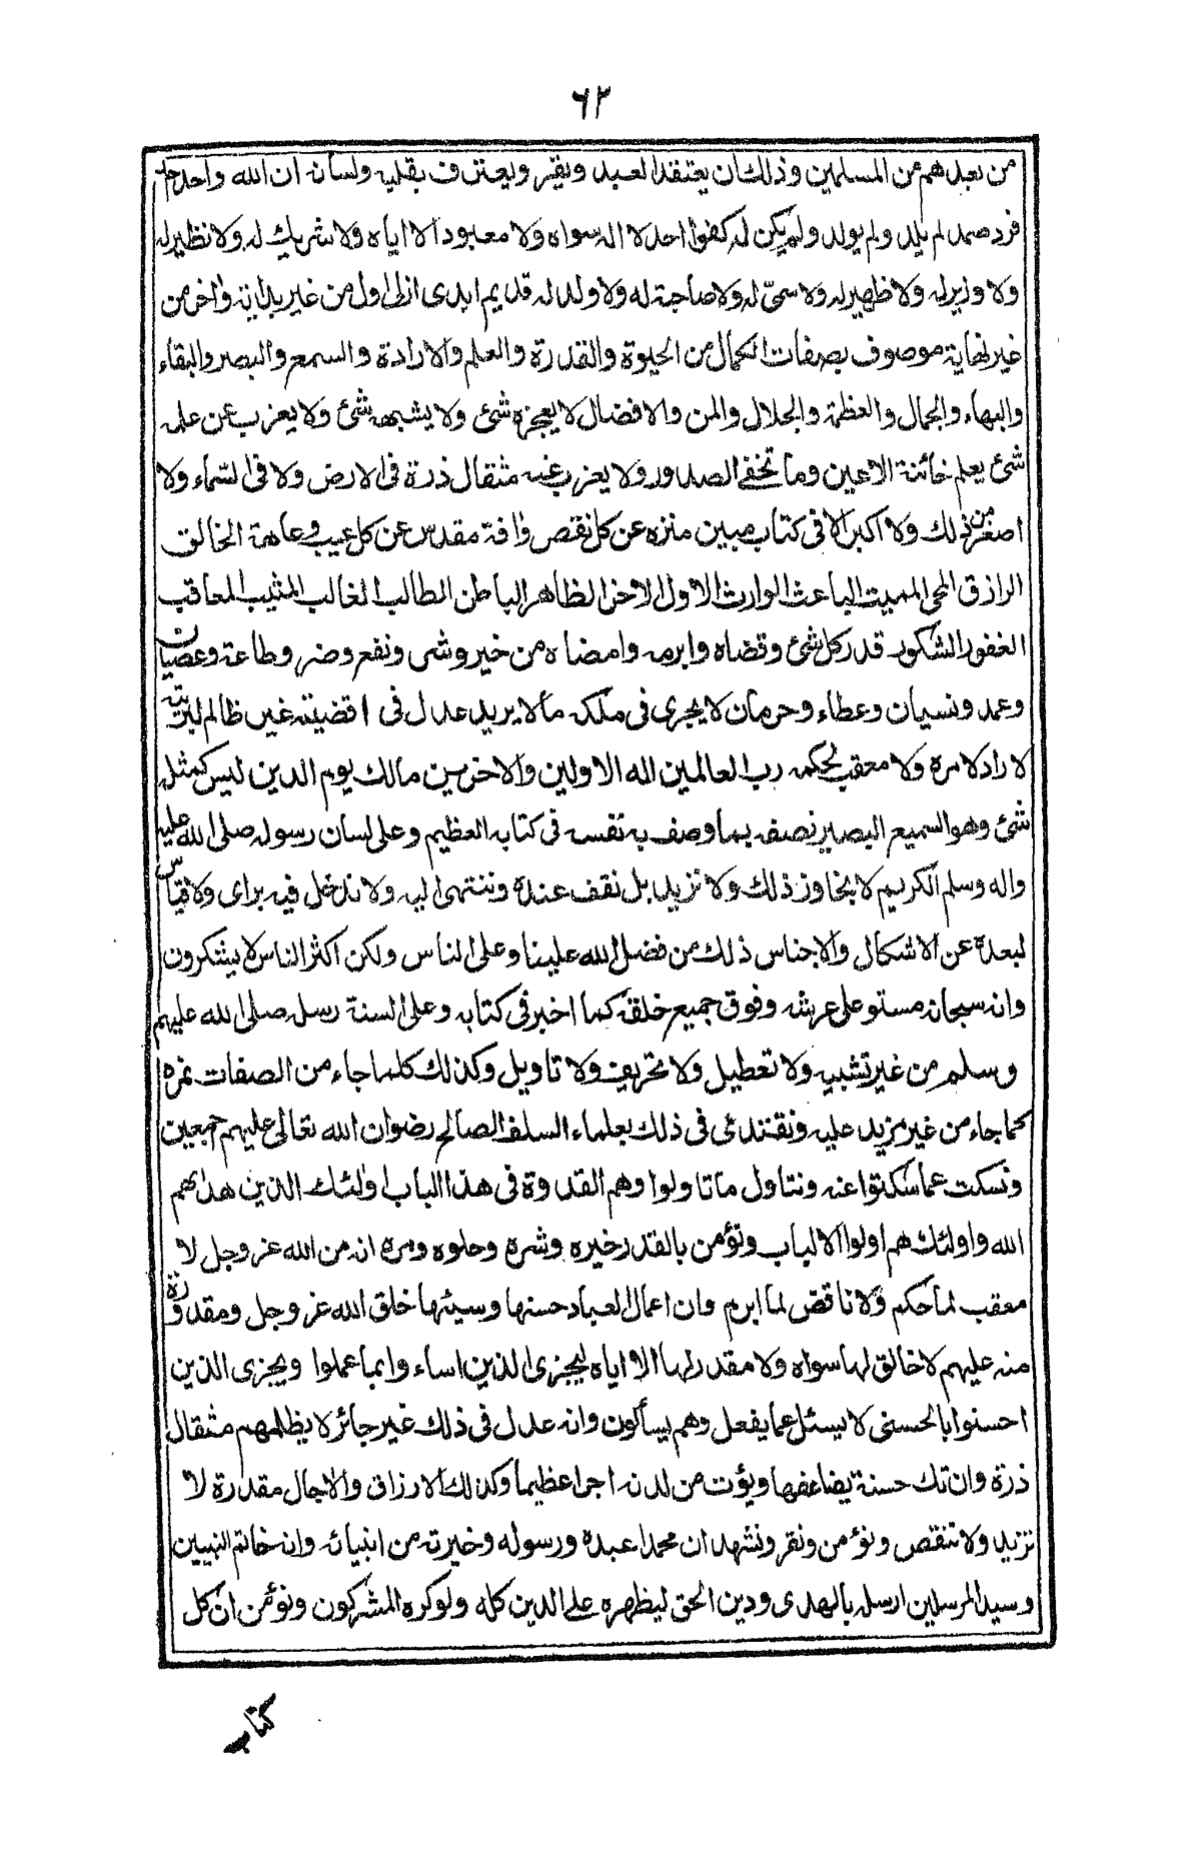 ٦٢
من بعدهم من المسلمين وذلك ان يعتقد العبد ويقر ويعترف بقلبه ولسانه ان الله واحد احد
فرد صمد لم يلد ولم يولد ولم يكن له كفوا احد لا اله سواه ولا معبود الا اياه ولا شريك له ولا نظير له
ولا وزير له ولا ظهير له ولا سمي له ولا صاحبة له ولا ولد له قديم ابدي ازلي اول من غير بداية واخر من
غير نهاية موصوف بصفات الكمال من الحيوة والقدرة والعلم والارادة والسمع والبصر والبقاء
والبهاء والجمال والعظمة والجلال والمن والافضال لا يعجزه شئ ولا يشبهه شئ ولا يعزب عن علمه
شئ يعلم خائنة الاعين وما تخفي الصدور ولا يعزب عنه مثقال ذرة في الارض ولا في السماء ولا
اصغر من ذلك ولا اكبر الا في كتاب مبين منزه عن كل نقص وافة مقدس عن كل عيب وعاهة الخالق
الرازق المحي المميت الباعث الوارث الاول الاخر الظاهر الباطن الطالب الغالب المثيب المعاقب
الغفور الشكور قدر كل شئ وقضاه وابرمه وامضاه من خير وشر ونفع وضر وطاعة وعصيان
وعمد ونسيان وعطاء وحرمان لا يجري في ملكه ما لا يريد عدل في اقضيته غير ظالم لبريته
لا راد لامره ولا معقب لحكمه رب العالمين اله الاولين والاخرين مالك يوم الدين ليس كمثله
شئ وهو السميع البصير نصفه بما وصف به نفسه في كتابه العظيم وعلى لسان رسوله صلى الله عليه
واله وسلم الكريم لا نجاوز ذلك ولا نزيد بل نقف عنده وننتهي اليه ولا ندخل فيه براى ولا قياس
لبعده عن الاشكال والاجناس ذلك من فضل الله علينا وعلى الناس ولكن اكثر الناس لا يشكرون
وانه سبحانه مستو على عرشه وفوق جميع خلقه كما اخبر في كتابه وعلى السنة رسله صلى الله عليهم
وسلم من غير تشبيه ولا تعطيل ولا تحريف ولا تاويل وكذلك كلما جاء من الصفات نمره
كما جاء من غير مزيد عليه ونقتدي في ذلك بعلماء السلف الصالح رضوان الله تعالى عليهم اجمعين
ونسكت عما سكتوا عنه ونتاول ما تاولوا وهم القدوة في هذا الباب اولئك الذين هداهم
الله واولئك هم اولوا الالباب ونؤمن بالقدر خيره وشره وحلوه ومره انه من الله عز وجل لا
معقب لما حكم ولا ناقض لما ابرم وان اعمال العباد حسنها وسيئها خلق الله عز وجل ومقدورة
منه عليهم لا خالق لها سواه ولا مقدر لها الا اياه ليجزى الذين اساءوا بما عملوا ويجزى الذين
احسنوا بالحسنى لا يسئل عما يفعل وهم يسألون وانه عدل في ذلك غير جائر لا يظلمهم مثقال
ذرة وان تك حسنة يضاعفها ويؤت من لدنه اجرا عظيما وكذلك الارزاق والاجال مقدرة لا
تزيد ولا تنقص ونؤمن ونقر ونشهد ان محمدا عبده ورسوله وخيرته من انبيائه وانه خاتم النبيين
وسيد المرسلين ارسله بالهدى ودين الحق ليظهره على الدين كله ولو كره المشركون ونؤمن ان كل
كتاب